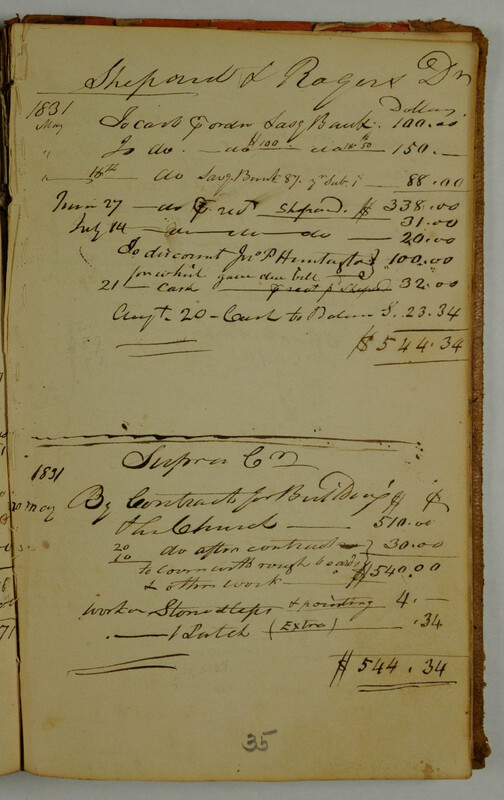 Sheperd & Rogers Dr
1831 Dollars
May To cash For dr Savg Bank. 100.00
" To do. — do $100 — do 18th $50 150.—
" 18th do Savg Bank 87. Sub. 1 88.00
June 27 — do Sheperd. $ 338.00
31.00
July 14 — do — do 20.00
To discount Jno P Huntington 100.00
for which gave due bill
21 — Cash 32.00
Augt 20 — Cash to Balance $. 23.34
$544.34
Supra Cr
1831
20 May By Contract for Building $
the Church — 510.00
20 do after contract 30.00
10
to cover with rough boards
& other work — $540.00
work on Stone steps & pointing 4.—
" — 1 Latch (Extra) — .34
$544.34
35